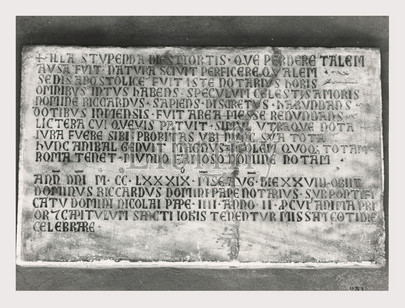 + ILLA STUPENDA DIES MORTIS · QUE PERDERE TALEM
AUSA FUIT · NATURA SCIVIT PERFICERE QUALEM
SEDIS APOSTOLICE FUIT ISTE NOTARIUS HORIS
OMNIBUS INTUS HABENS · SPECULUM CELESTIS AMORIS
NOMINE RICCARDUS · SAPIENS · DISCRETUS · HABUNDANS
DOTIBUS IMMENSIS · FUIT AREA MESSE REDUNDANS
LICTERA CUI QUEVIS PATUIT · SIMUL UTRAQUE NOTA
IURA FUERE SIBI PROBITAS UBI TOTA
HUNC GENUIT MAGNUS PROLEM QUOQ; TOTAM
ROMA TENET · MUNDO FAMOSO NOMINE NOTAM
ANN DNI M · CC · LXXXIX · MSE AUG · DIE XXVIII · OBIIT
DOMINUS RICCARDUS DOMINI PAPE NOTARIUS · SUB PONTIFI
CATU DOMINI NICOLAI PAPE · IIII · ANNO · II · P CUI ANIMA PRI
OR 7 CAPITULUM SANCTI IOHIS TENENTUR MISSA COTIDIE
CELEBRARE